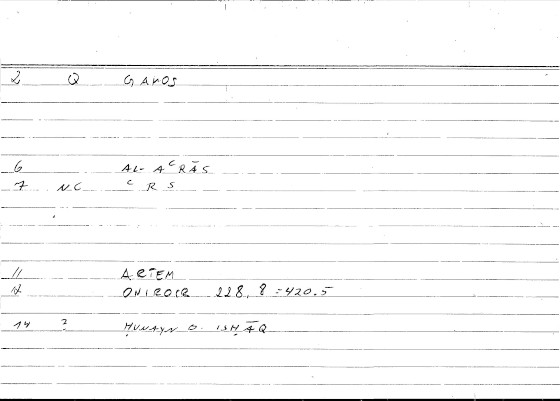 2 Q GAMOS
6 AL-AᶜRĀS
7 N.C ᶜRS
11 ARTEM
12 ONIROCR 228,8 = 420.5
14 ? ḤUNAYN B. ISḤĀQ